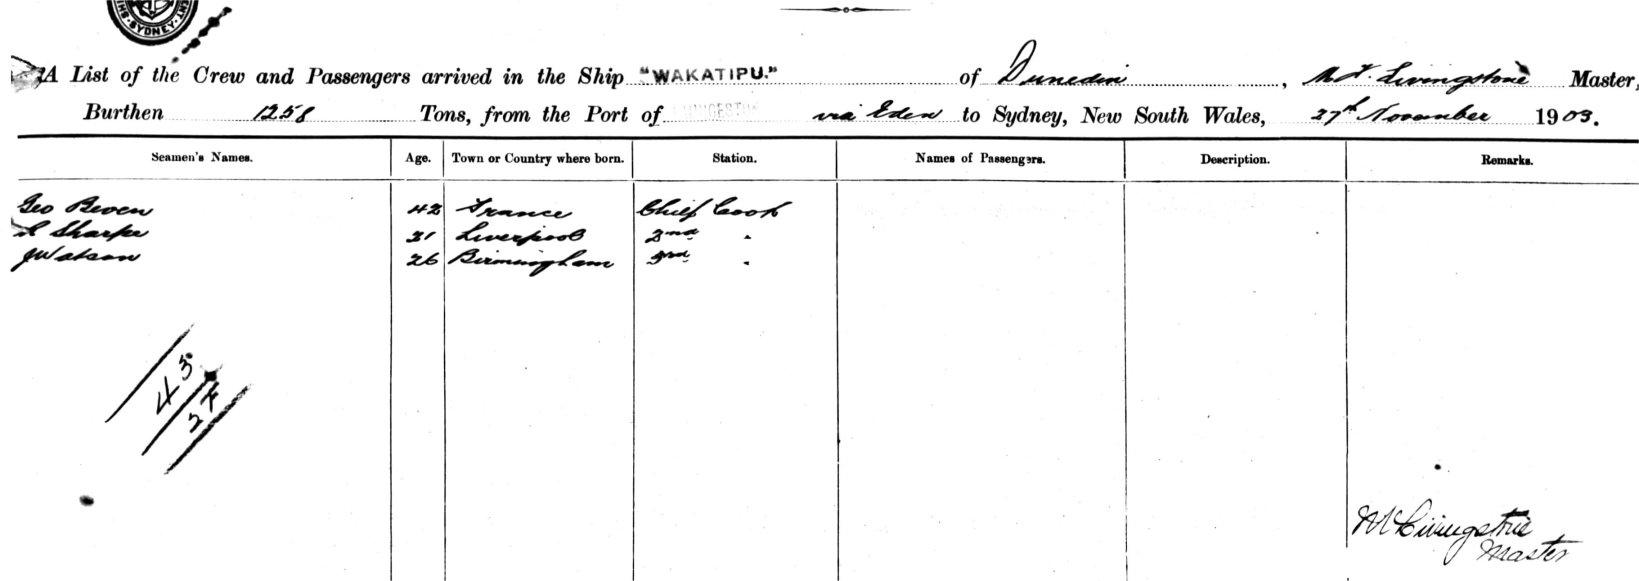 SYDNEY
A List of the Crew and Passengers arrived in the Ship "WAKATIPU." of Dunedin, Livingstone Master,
Burthen 1258 Tons, from the Port of LAUNCESTON via Eden to Sydney, New South Wales, 27th November 1903.
Seamen's Names. Age. Town or Country where born. Station. Names of Passengers. Description. Remarks.
Geo Beven 42 France Chief Cook
Sharpe 21 Liverpool 2nd "
J Watson 26 Birmingham 3rd "
43
27
M Livingstone
Master